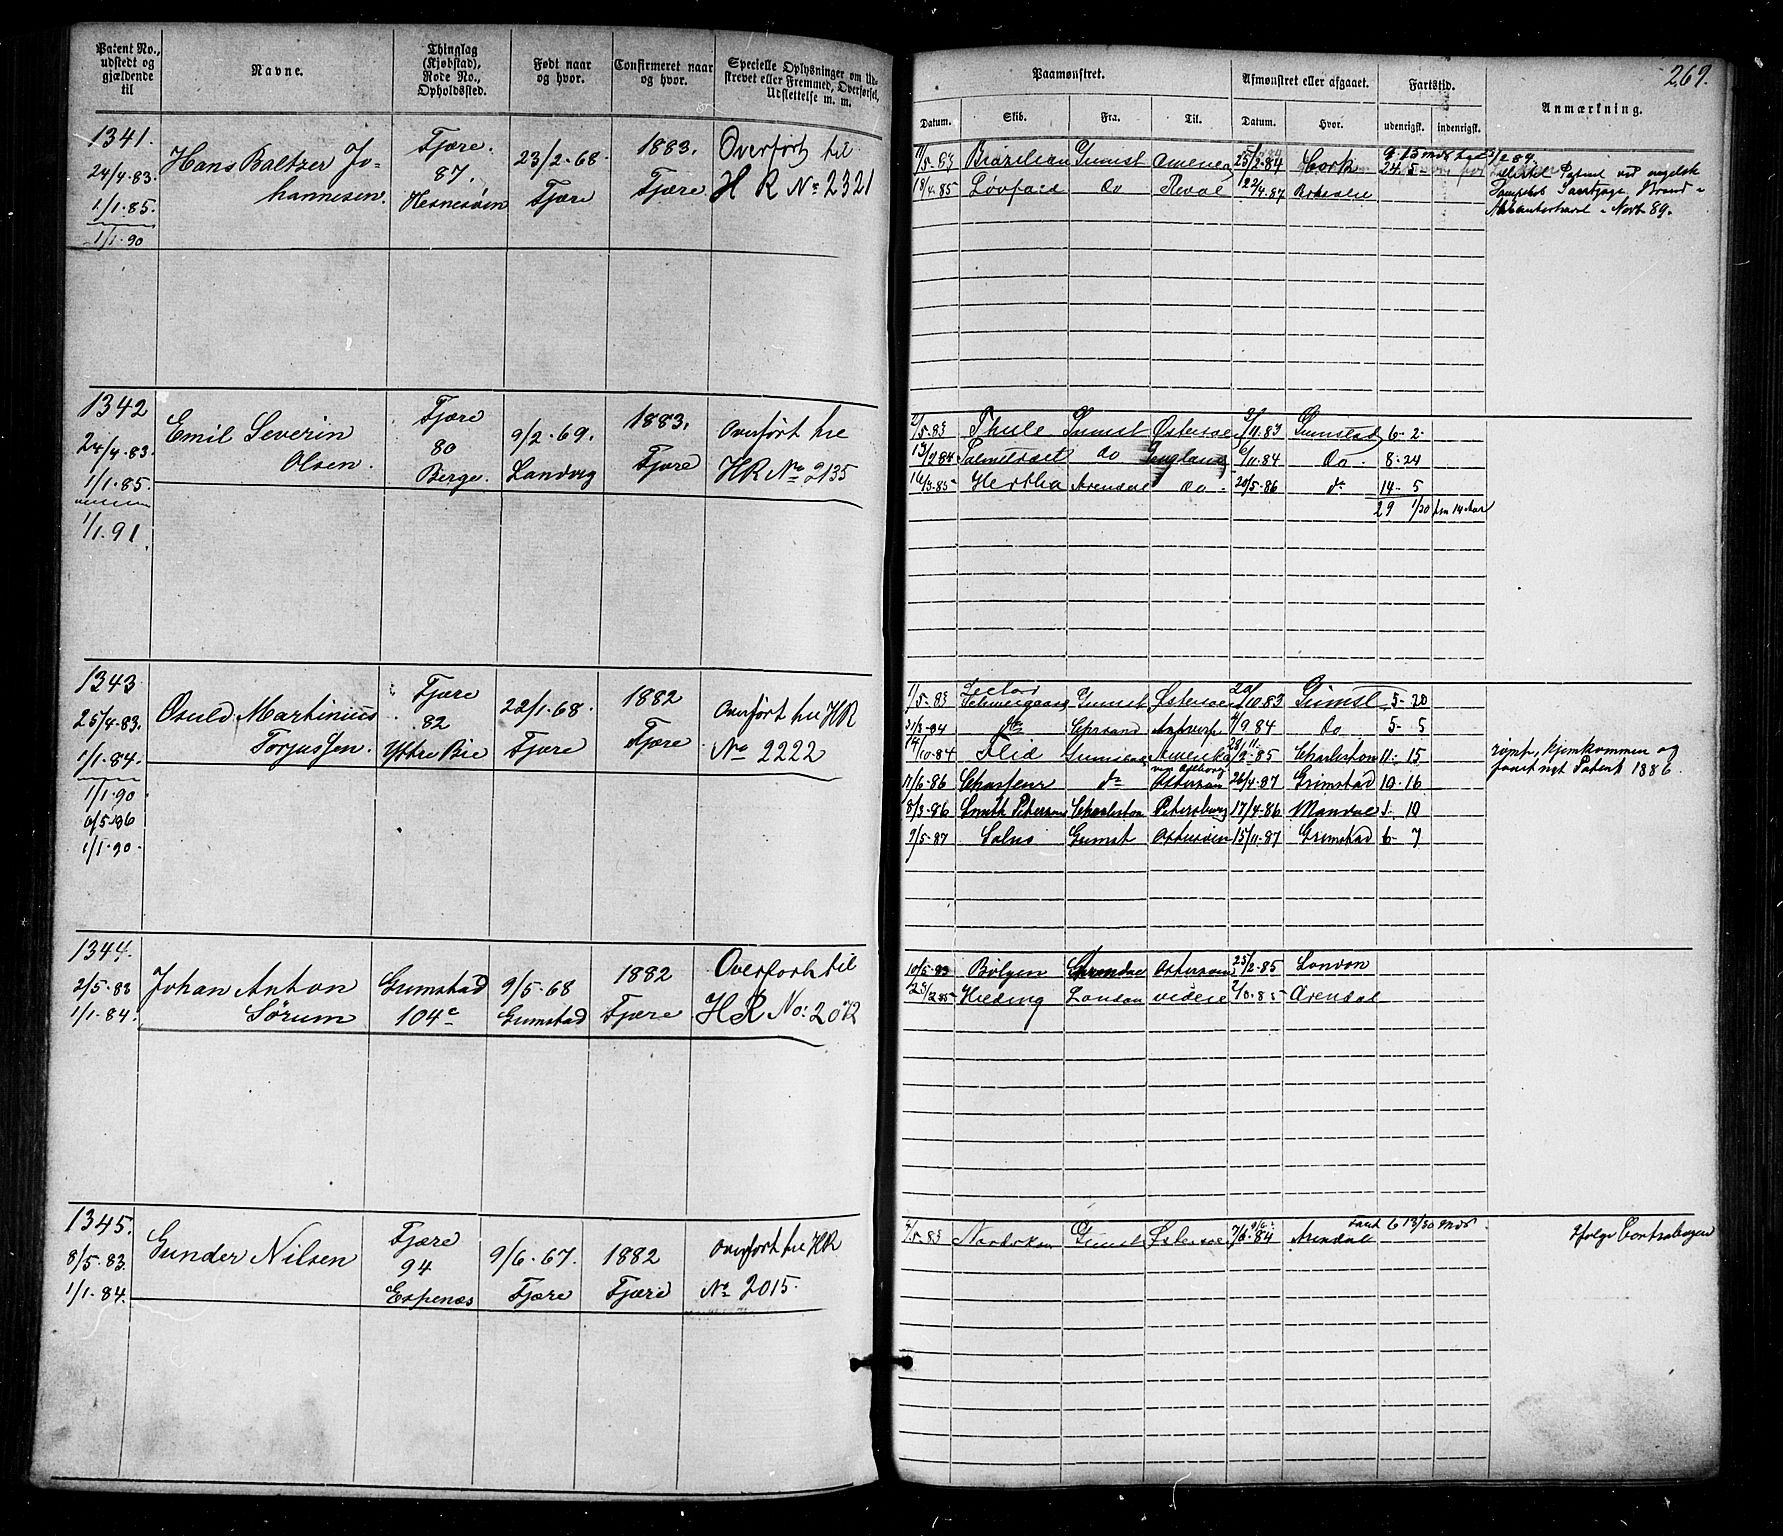 Patent No., udstedt og gjældende til
Navne.
Thinglag (Kjøbstad), Rode No., Opholdssted.
Født naar og hvor.
Confirmeret naar og hvor.
Specielle Oplysninger om Udskrevet eller Fremmed, Overførsel, Udslettelse m. m.
Paamønstret.
Afmønstret eller afgaaet.
Fartstid.
Anmærkning.
269.
Datum.
Skib.
Fra.
Til.
Datum.
Hvor.
udenrigst.
indenrigst.
1341.
24/4.83.
1/1.85.
1/1.90
Hans Baltzer Jo-
hannesen.
Fjære.
87.
Hesnesøen
23/2.68.
Fjære
1883.
Fjære
Overført til
H R No 2321
11/5.83 Brazilian Grimst Amerika 25/2.84 Cork
18/4.85 Løvfald do Reval 22/4.87
1342
24/4.83.
1/1.85.
1/1.91.
Emil Severin
Olsen.
Fjære
80
Berge.
9/2.69.
Landvig
1883.
Fjære
Overført til
HR No 2135
2/5.83 Thule Grimst Østersøe 3/11.83 Grimstad 6-2-
13/2.84 do England 6/11.84 do 8-24
16/3.85 Hertha Arendal do 20/5.86 do 14-5
29 1/30
1343
25/4.83.
1/1.84.
1/1.90
6/5.86
1/1.90.
Osuld Martinius
Torjussen.
Fjære
82
Yttre Bie
22/1.68.
Fjære
1882
Fjære
Overført til HR
No 2222
1/5.83 Grimst Østersøe 20/10.83 Grimst 5-20
31/3.84 do Chrsand Antwerp 4/9.84 do 5-5
14/10.84 Flid Grimstad Amerika Charleston 11-15
11/6.86 Chasseur do Østersøen 26/4.87 Grimstad 10-16
8/3.86 Smith Petersen Charleston Petersburg 17/4.86 Mandal 1-10
7/5.87 Grimst Østersøen 15/11.87 Grimstad 6-7
rømt, hjemkommen og
faaet nyt Patent 1886.
1344.
2/5.83
1/1.84.
Johan Anton
Sørum
Grimstad
104c
9/5.68
Grimstad
1882
Fjære
Overført til
H R No: 2072
10/5.83 Bølgen Østersøen 25/2.85 London
25/2.85 Hilding London videre Arendal
1345.
8/5.83.
1/1.84.
Gunder Nilsen
Fjære
94
Espenæs
9/6.67.
Fjære
1882
Fjære
Overført til HR
No 2015.
Grimst Østersøe 7/6.84 Arendal
ifølge Contrabogen